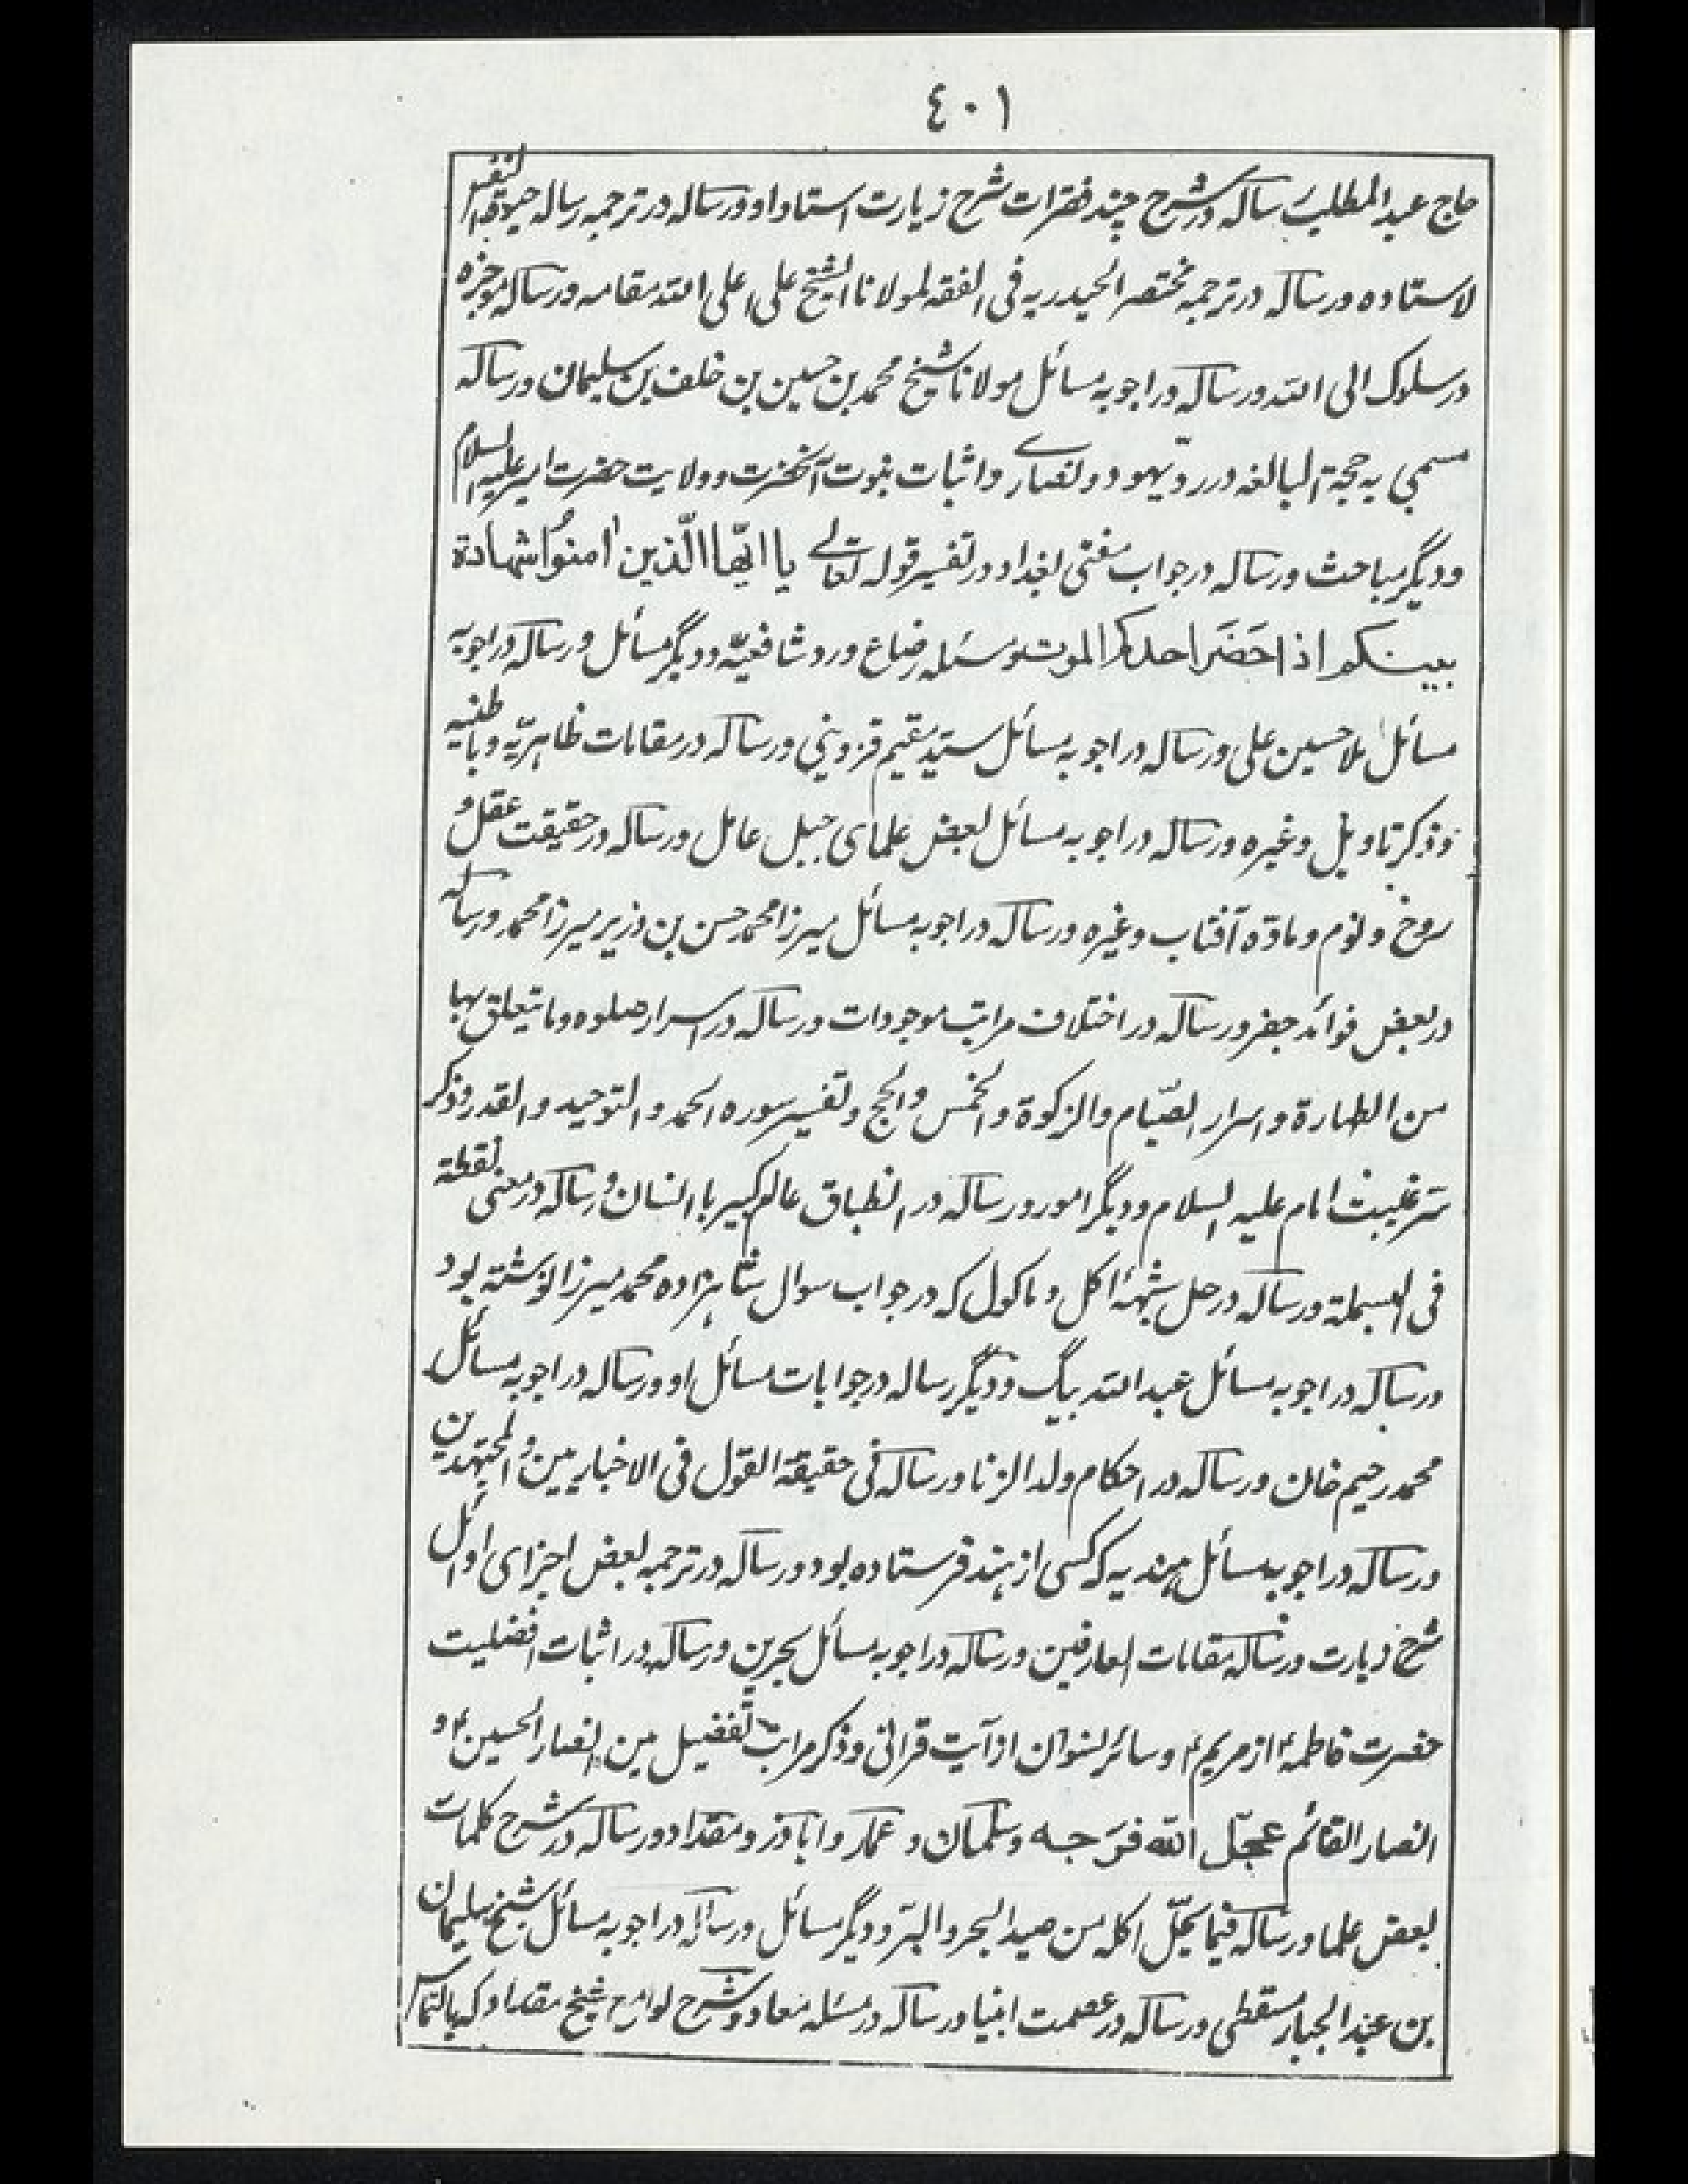 ٤٠١
حاج عبد المطلب رساله در شرح چند فقرات شرح زیارت استاد او و رساله در ترجمه رساله حیوة النفس
لاستاده و رساله در ترجمه مختصر الحیدریه فی الفقه لمولانا الشیخ علی اعلی الله مقامه و رساله موجزه
در سلوک الی الله و رساله در اجوبه مسائل مولانا شیخ محمد بن حسین بن خلف بن سلیمان و رساله
مسمی به حجة البالغه در ردّ یهود و نصارے و اثبات نبوت آنحضرت و ولایت حضرت امیر علیه السلام
و دیگر مباحث و رساله در جواب مفتی بغداد در تفسیر قوله تعالے یا ایّها الّذین اٰمنوُا شهادة
بینکم اذا حَضَرَ احدکم الموت و مسئله رضاع و رد شافعیّه و دیگر مسائل و رساله در اجوبه
مسائل ملا حسین علی و رساله در اجوبه مسائل سیّد مقیم قزوینی و رساله در مقامات ظاهریّه و باطنیه
و ذکر تاویل و غیره و رساله در اجوبه مسائل بعض علمای جبل عامل و رساله در حقیقت عقل و
روح و نوم و مادّه آفتاب و غیره و رساله در اجوبه مسائل میرزا محمد حسن بن وزیر میرزا محمد و رساله
در بعض فوائد جفر و رساله در اختلاف مراتب موجودات و رساله در اسرار صلوه و ما یتعلق بها
من الطهارة و اسرار الصّیام و الزکوة و الخمس و الحج و تفسیر سوره الحمد و التوحید و القدر و ذکر
سرّ غیبت امام علیه السلام و دیگر امور و رساله در انطباق عالم کبیر با انسان و رساله در معنی نقطة
فی البسملة و رساله در حل شبهۀ اکل و ماکول که در جواب سوال شاهزاده محمد میرزا نوشته بود
و رساله در اجوبه مسائل عبد الله بیگ و دیگر رساله در جوابات مسائل او و رساله در اجوبه مسائل
محمد رحیم خان و رساله در احکام ولد الزنا و رساله فی حقیقة القول فی الاخباریین و المجتهدین
و رساله در اجوبه مسائل هندیه که کسی از هند فرستاده بود و رساله در ترجمه بعض اجزای اوائل
شرح زیارت و رساله مقامات العارفین و رساله در اجوبه مسائل بحرین و رساله در اثبات افضلیت
حضرت فاطمهؑ از مریمؑ و سائر نسوان از آیت قرانی و ذکر مراتب تفضیل بین انصار الحسینؑ و
انصار القائم عجّل الله فرَجه و سلمان و عمار و اباذر و مقداد و رساله در شرح کلمات
بعض علما و رساله فیما یحلّ اکله من صید البحر و البرّ و دیگر مسائل و رساله در اجوبه مسائل شیخ سلیمان
بن عبد الجبار مسقطی و رساله در عصمت انبیا و رساله در مسئله معاد و شرح لوامع شیخ مقداد که بالتماس